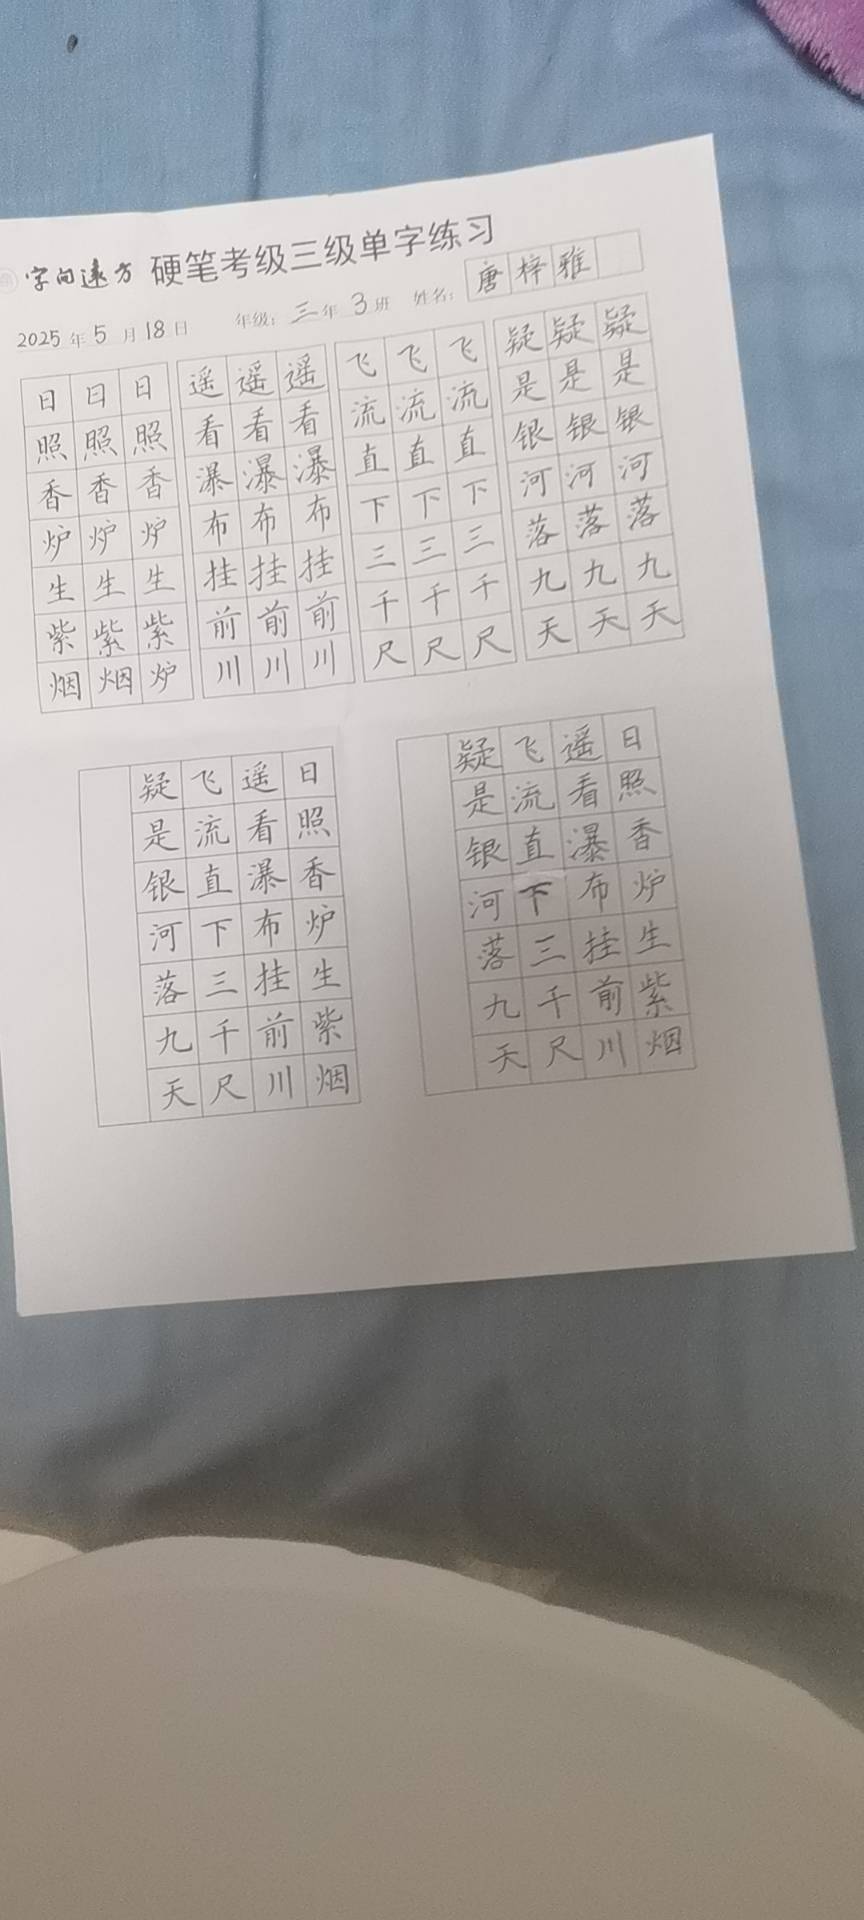 字向远方 硬笔考级三级单字练习
2025年5月18日 年级：三年3班 姓名：唐梓雅
日日日 遥遥遥 飞飞飞 疑疑疑
照照照 看看看 流流流 是是是
香香香 瀑瀑瀑 直直直 银银银
炉炉炉 布布布 下下下 河河河
生生生 挂挂挂 三三三 落落落
紫紫紫 前前前 千千千 九九九
烟烟炉 川川川 尺尺尺 天天天
疑飞遥日
是流看照
银直瀑香
河下布炉
落三挂生
九千前紫
天尺川烟
疑飞遥日
是流看照
银直瀑香
河下布炉
落三挂生
九千前紫
天尺川烟